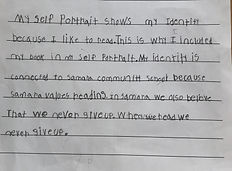 My self Portrait shows my Identity
because I like to read. This is why I included
my book in my self Portrait. My identity is
connected to samara community school because
samara values reading in samara we also believe
That we never give up. When we read we
never give up.